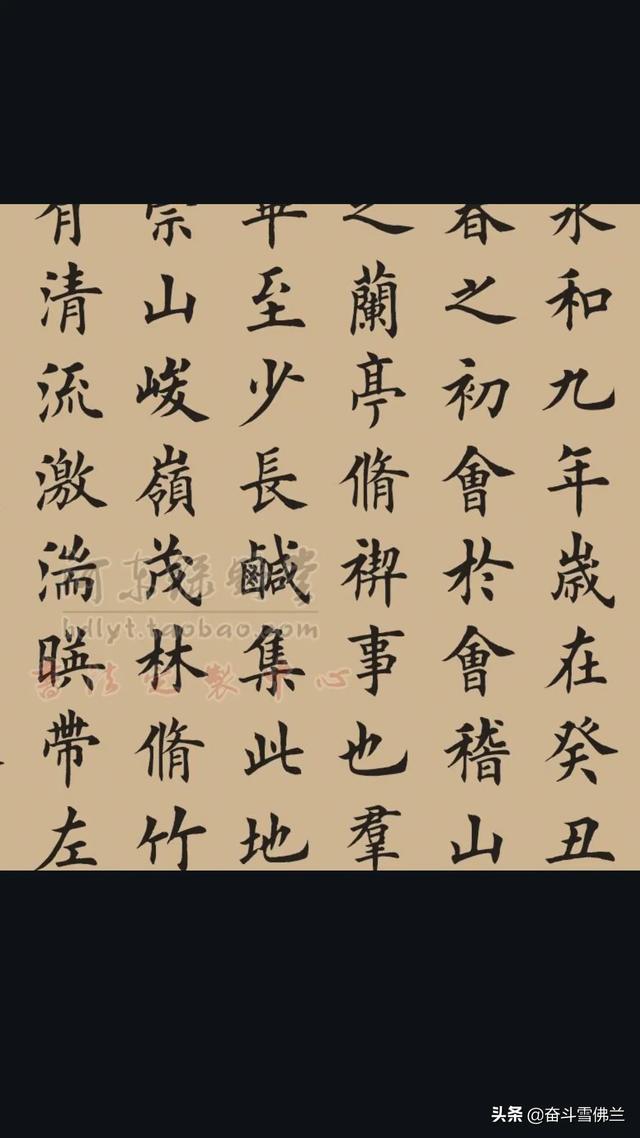 永和九年嵗在癸丑
春之初會於會稽山
之蘭亭脩禊事也羣
畢至少長鹹集此地
崇山峻嶺茂林脩竹
有清流激湍暎帶左
hdlyt.taobao.com
書法定製中心
头条 @奋斗雪佛兰